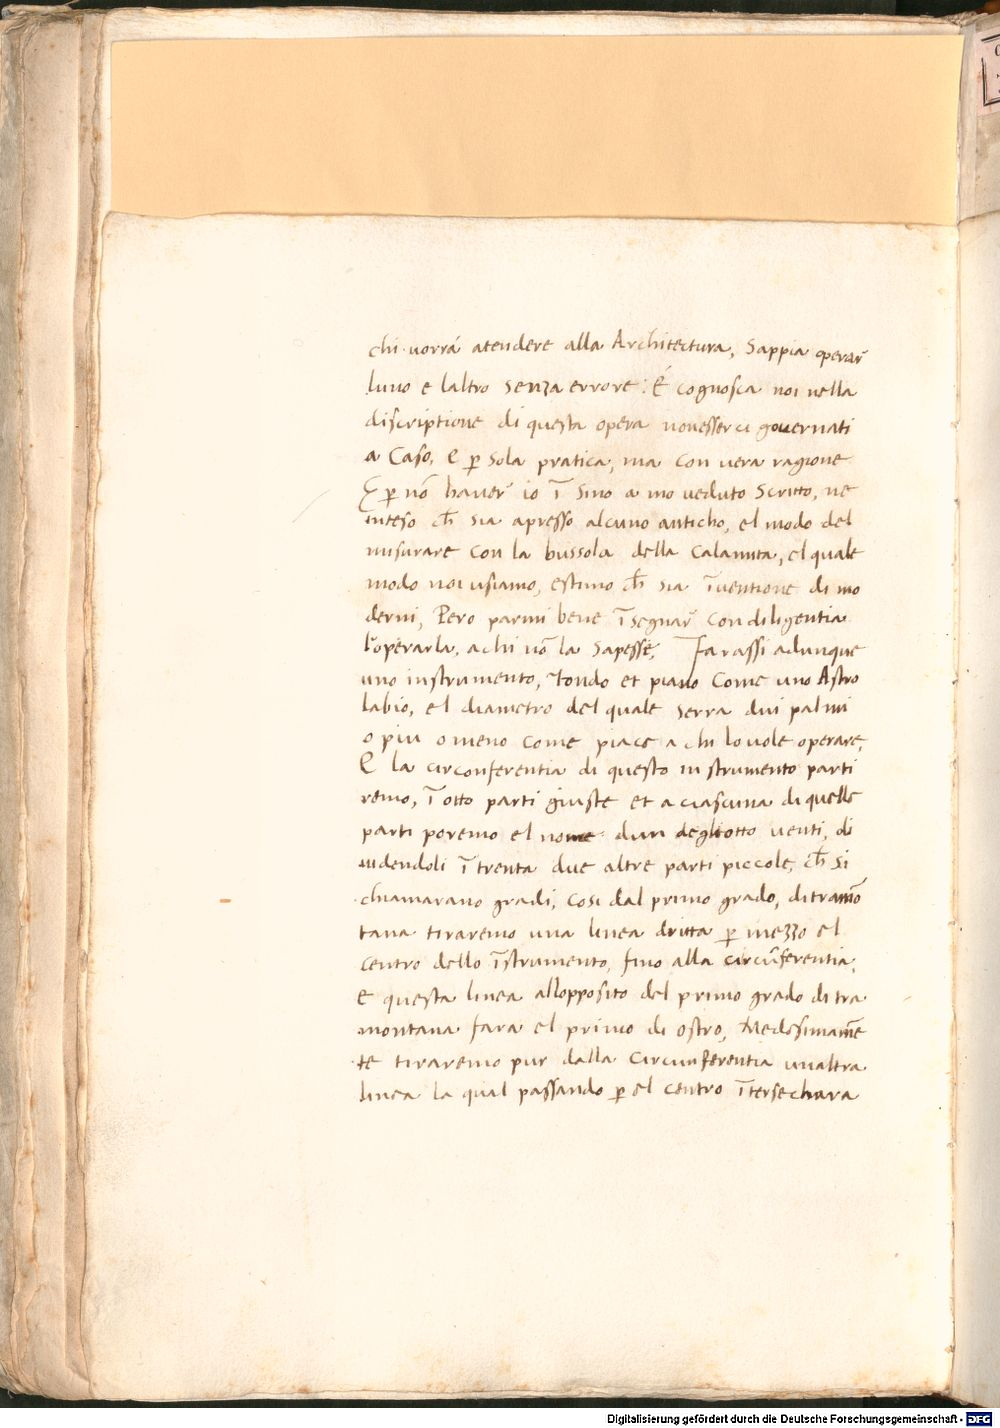 chi vorrá atendere alla Architectura, Sappia operar̃
luno e laltro senza errore: É cognosca noi nella
discriptione di questa opera nonesser ci governati
a Caso, e p̱ sola pratica, ma con vera ragione
E p̱ nõ haver̃ io ĩ sino a mo veduto Scritto, ne
inteso ch̃ sia apresso alcuno anticho, el modo del
misurare con la bussola della Calamita, el quale
modo noi usiamo, estimo ch̃ sia ĩventione di mo
derni, Pero parmi bene ĩsegnar̃ con diligentia
l'operarla, a chi nõ la sapesse, Farassi adunque
uno instrumento, tondo et piano Come uno Astro
labio, el diametro del quale serra dui palmi
o piu o meno come piace a chi lo vole operare,
E la circonferentia di questo instrumento parti
remo, ĩ otto parti giuste et a ciascuna di quelle
parti poremo el nome dun degliotto venti, di
videndoli ĩ trenta due altre parti piccole, ch̃ si
chiamarano gradi, Cosi dal primo grado, di tramõ
tana tiraremo una linea dritta p̱ mezzo el
centro dello ĩstrumento, fino alla circũferentia,
e questa linea allopposito del primo grado di tra
montana fara el primo di ostro, Medesimamẽ
te tiraremo pur dalla Circunferentia unaltra
linea la qual passando p̱ el centro ĩtersechara
Digitalisierung gefördert durch die Deutsche Forschungsgemeinschaft - DFG